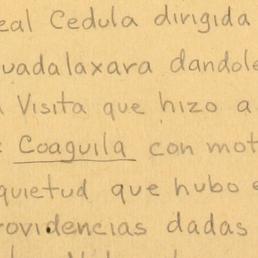 eal Cedula dirigida
uadalaxara dandole
Visita que hizo a
Coaguila con mot
quietud que hubo e
rovidencias dadas